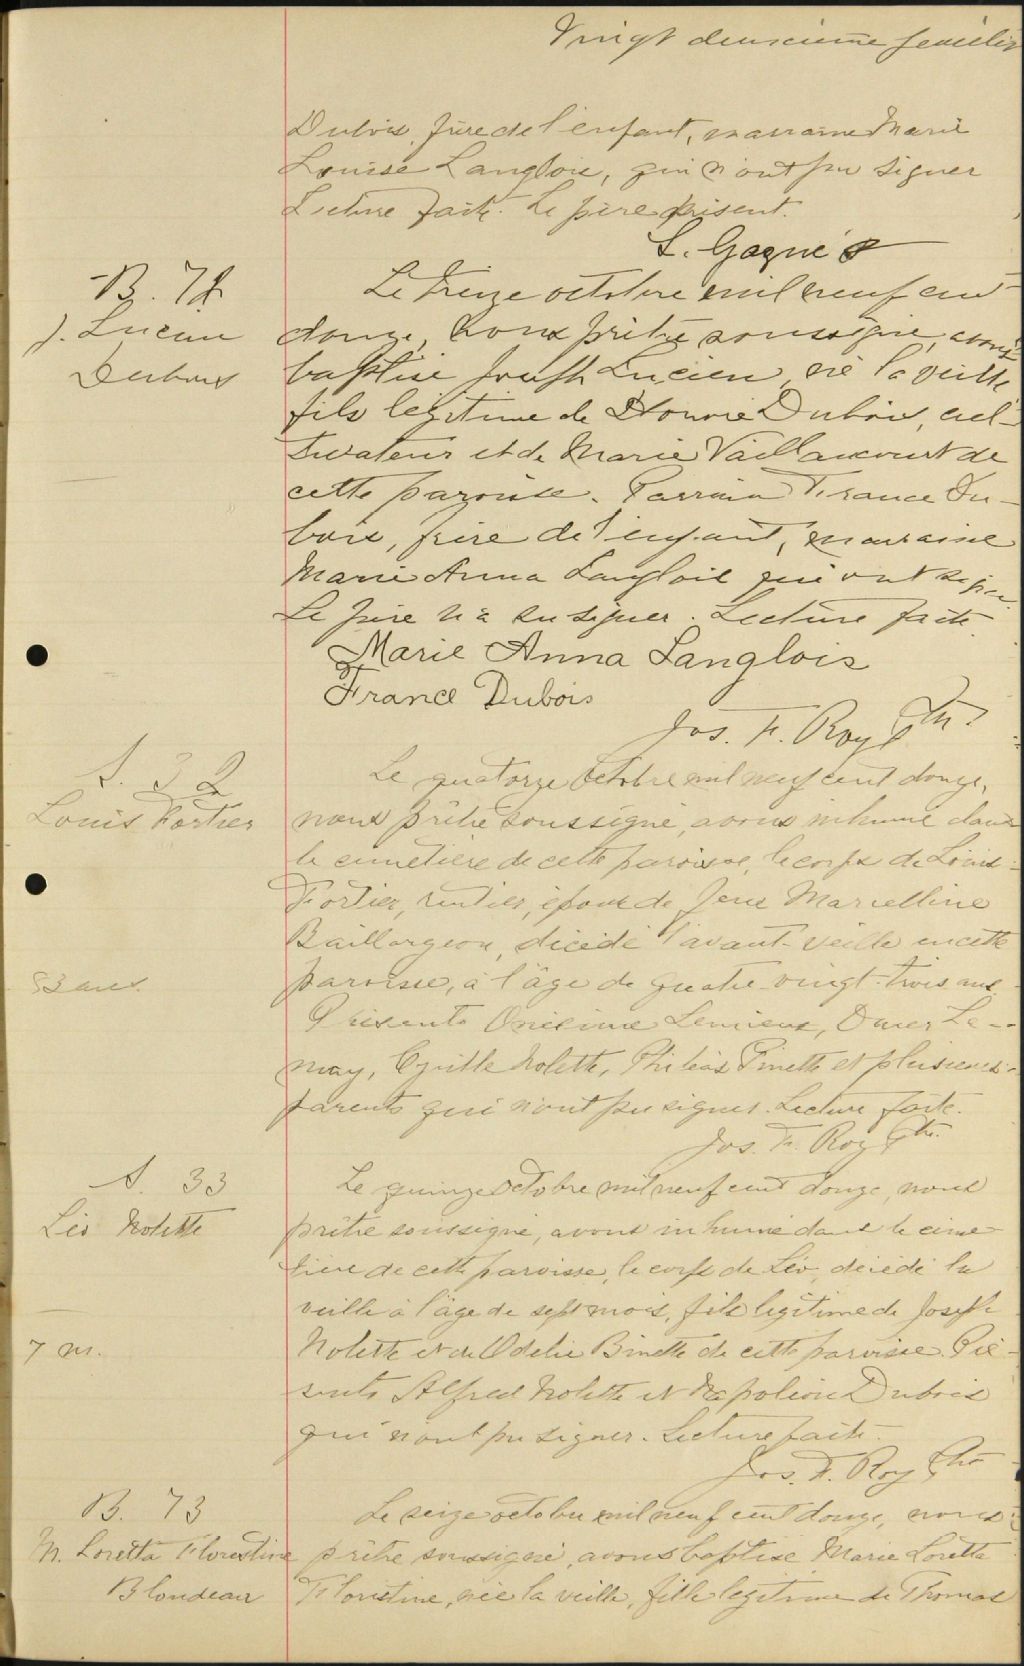 Vingt deuxième feuillet
Dubois, frère de l'enfant, marraine Marie
Louise Langlois, qui n'ont pu signer
Lecture faite. Le père présent.
L. Gagné
B. 72
J. Lucien
Dubois
Le treize octobre mil neuf cent
douze, nous prêtre soussigné, avons
baptisé Joseph Lucien, né la veille
fils légitime de Honoré Dubois, cul-
tivateur et de Marie Vaillancourt de
cette paroisse. Parrain France Du-
bois, frère de l'enfant, marraine
Marie Anna Langlois qui ont signé.
Le père n'a su signer. Lecture faite.
Marie Anna Langlois
France Dubois
Jos. F. Roy Ptre
S. 32
Louis Fortier
83 ans.
Le quatorze octobre mil neuf cent douze,
nous prêtre soussigné, avons inhumé dans
le cimetière de cette paroisse, le corps de Louis
Fortier, rentier, époux de feue Marcelline
Baillargeon, décédé l'avant-veille en cette
paroisse, à l'âge de quatre-vingt-trois ans.
Présents Onésime Lemieux, Omer Le-
may, Cyrille Nolette, Philéas Pinette et plusieurs
parents qui n'ont pu signer. Lecture faite.
Jos. F. Roy Ptre.
S. 33
Léo Nolette
7 m.
Le quinze octobre mil neuf cent douze, nous
prêtre soussigné, avons inhumé dans le cime-
tière de cette paroisse, le corps de Léo, décédé la
veille à l'âge de sept mois, fils légitime de Joseph
Nolette et de Odélie Binette de cette paroisse. Pré-
sents Alfred Nolette et Napoléon Dubois
qui n'ont pu signer. Lecture faite.
Jos. F. Roy Ptre
B. 73
M. Loretta Florestine
Blondeau
Le seize octobre mil neuf cent douze, nous
prêtre soussigné, avons baptisé Marie Loretta
Floristine, née la veille, fille légitime de Thomas